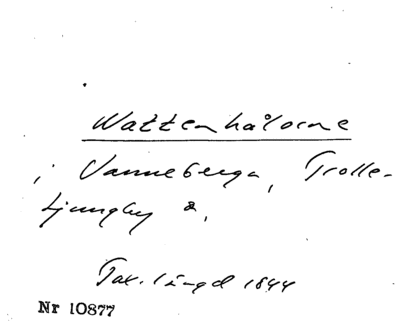 Wattenhålorne
i Vanneberga, Trolle-
Ljungby s.
Tax. längd 1844
Nr 10877